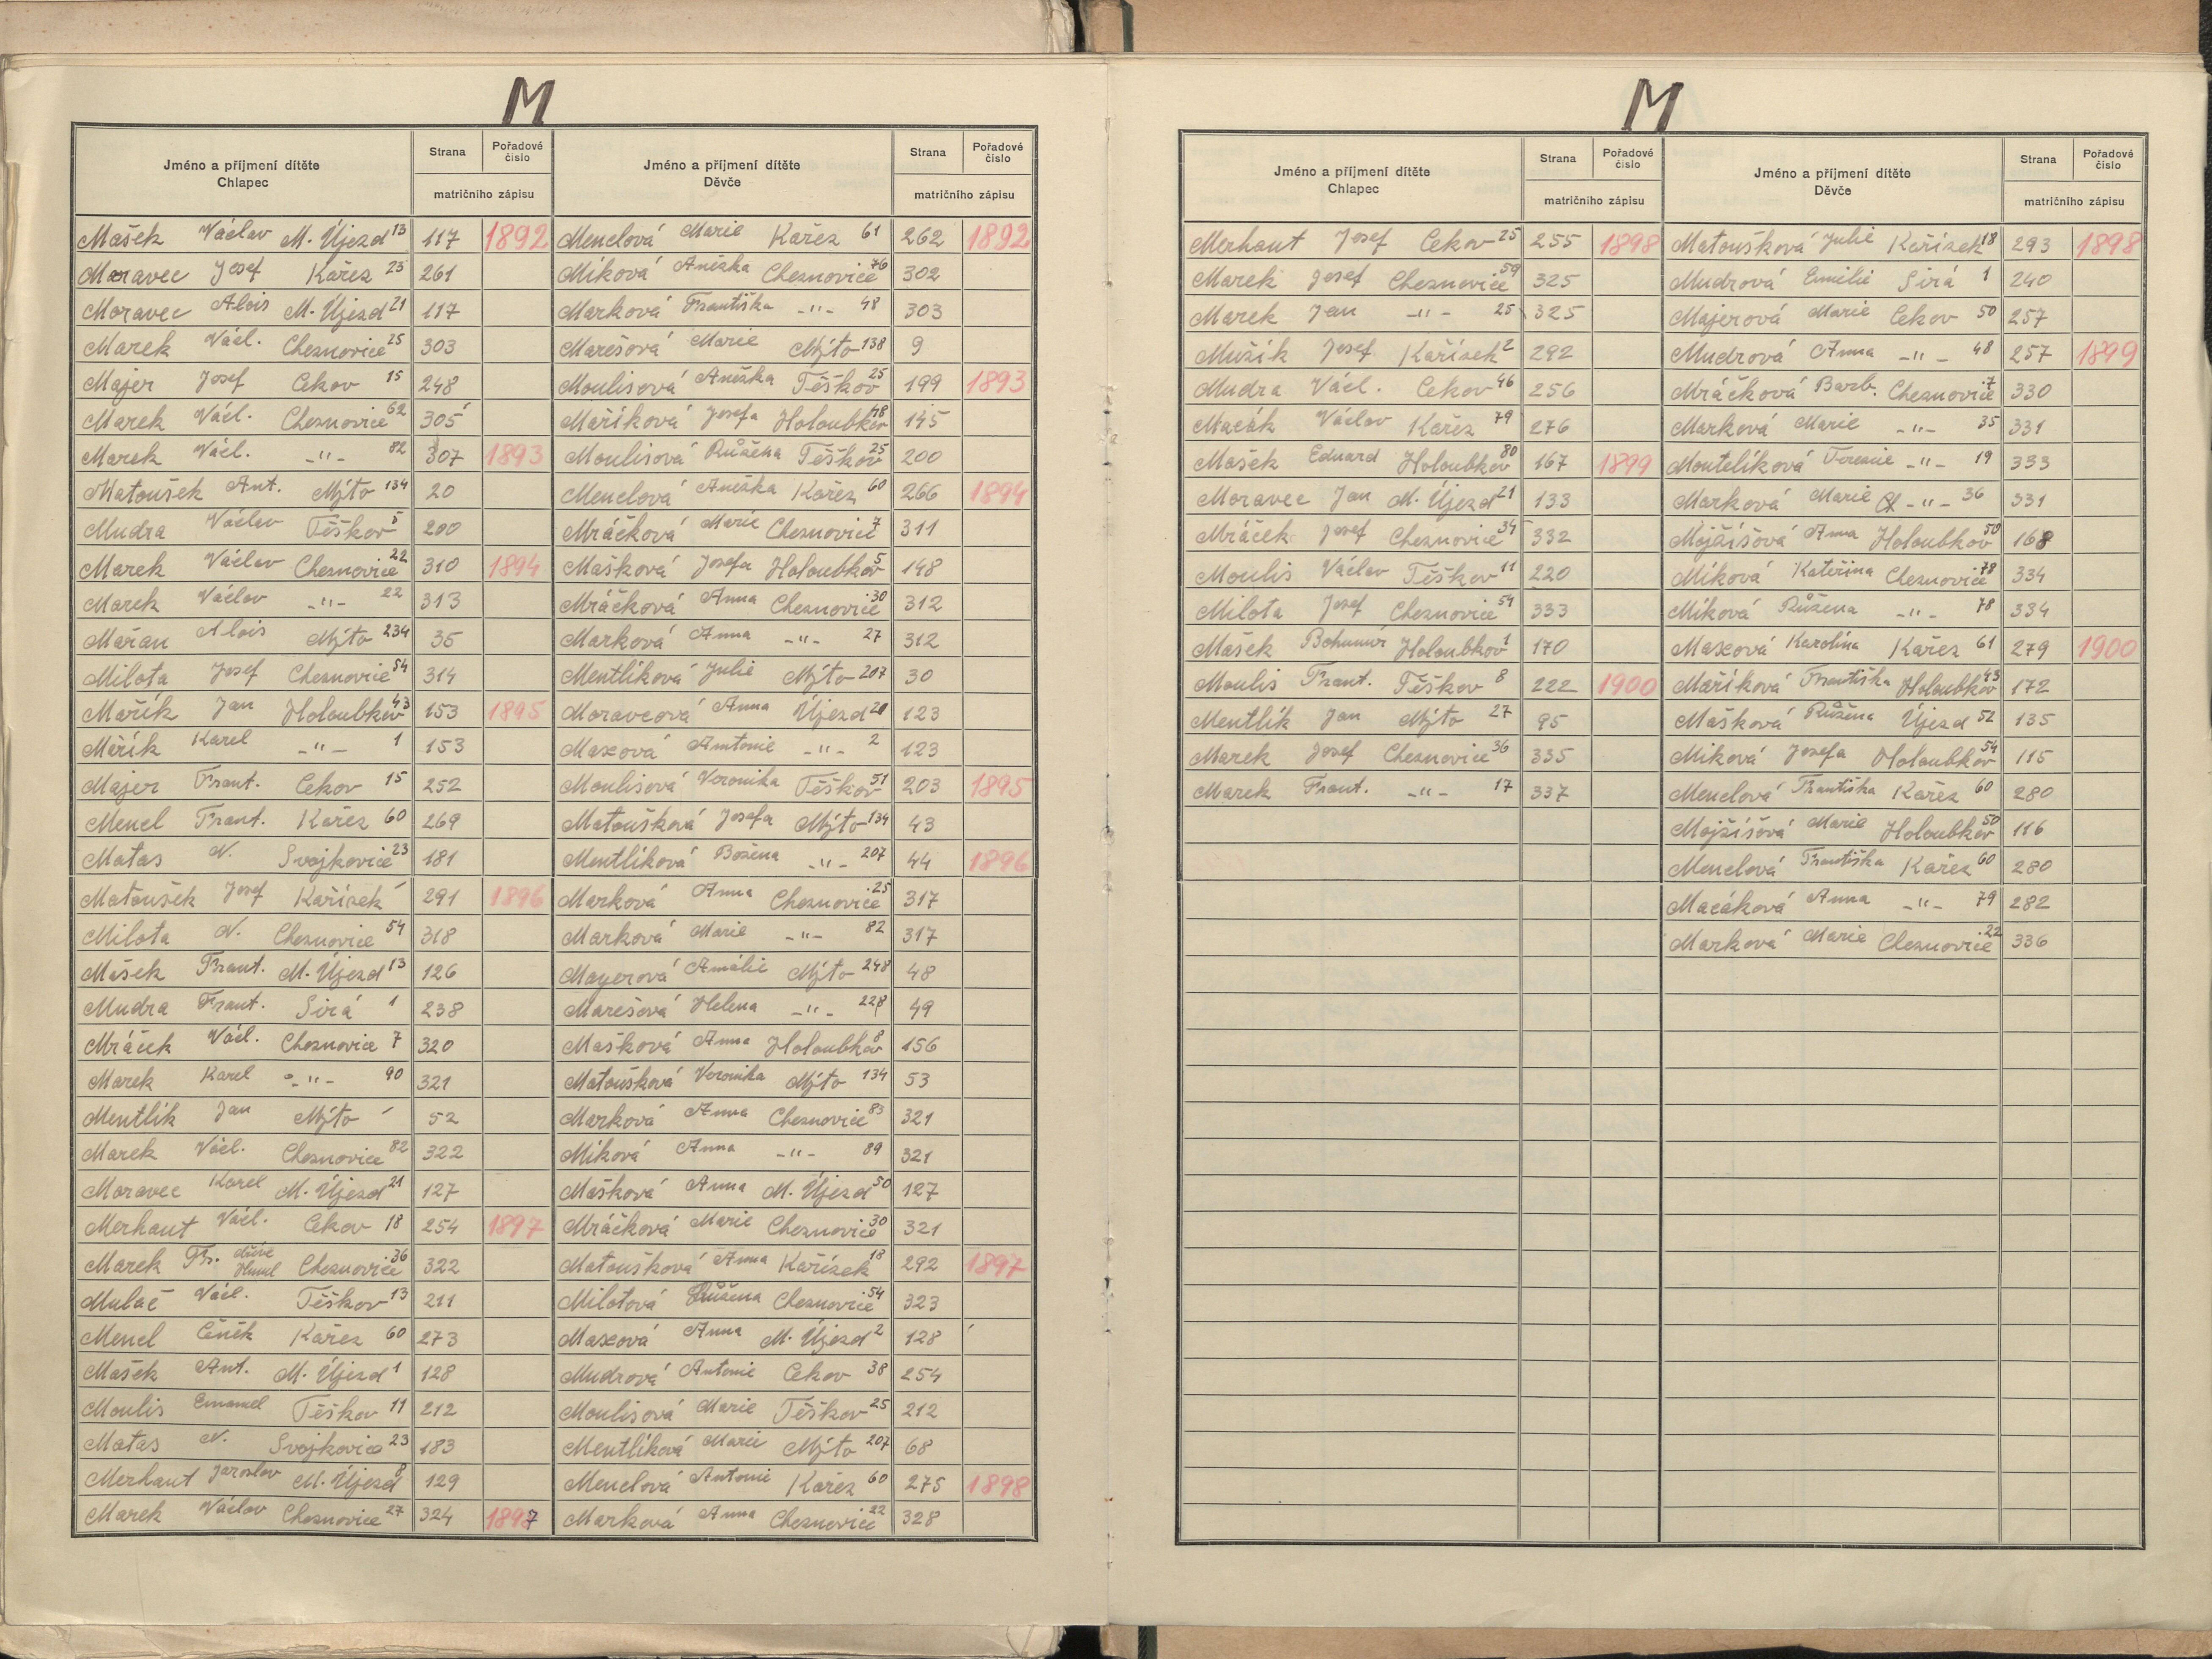 M
Jméno a příjmení dítěte
Chlapec
Strana
Pořadové číslo
matričního zápisu
Jméno a příjmení dítěte
Děvče
Strana
Pořadové číslo
matričního zápisu
Mašek Václav M. Újezd 13 117 1892 Menclová Marie Kařez 61 262 1892
Moravec Josef Kařez 23 261 Míková Anežka Cheznovice 76 302
Moravec Alois M. Újezd 21 117 Marková Františka -"- 48 303
Marek Václ. Cheznovice 25 303 Marešová Marie Mýto 138 9
Majer Josef Cekov 15 248 Moulisová Anežka Těškov 25 199 1893
Marek Václ. Cheznovice 62 305 Maříková Josefa Holoubkov 48 145
Marek Václ. -"- 82 307 1893 Moulisová Růžena Těškov 25 200
Matoušek Ant. Mýto 134 20 Menclová Anežka Kařez 60 266 1894
Mudra Václav Těškov 5 200 Mráčková Marie Cheznovice 7 311
Marek Václav Cheznovice 22 310 1894 Mašková Josefa Holoubkov 5 148
Marek Václav -"- 22 313 Mráčková Anna Cheznovice 30 312
Mařan Alois Mýto 234 35 Marková Anna -"- 27 312
Milota Josef Cheznovice 54 314 Mentlíková Julie Mýto 207 30
Mařík Jan Holoubkov 43 153 1895 Moravcová Anna Újezd 20 123
Mařík Karel -"- 1 153 Maxová Antonie -"- 2 123
Majer Frant. Cekov 15 252 Moulisová Veronika Těškov 51 203 1895
Mencl Frant. Kařez 60 269 Matoušková Josefa Mýto 134 43
Matas N. Svojkovice 23 181 Mentlíková Božena -"- 207 44 1896
Matoušek Josef Kařízek 291 1896 Marková Anna Cheznovice 25 317
Milota N. Cheznovice 54 318 Marková Marie -"- 82 317
Mašek Frant. M. Újezd 13 126 Mayerová Amálie Mýto 248 48
Mudra Frant. Sirá 1 238 Marešová Helena -"- 228 49
Mráček Václ. Cheznovice 7 320 Mašková Anna Holoubkov 8 156
Marek Karel -"- 90 321 Matoušková Veronika Mýto 134 53
Mentlík Jan Mýto 52 Marková Anna Cheznovice 83 321
Marek Václ. Cheznovice 82 322 Míková Anna -"- 89 321
Moravec Karel M. Újezd 21 127 Mašková Anna M. Újezd 50 127
Merhaut Václ. Cekov 18 254 1897 Mráčková Marie Cheznovice 30 321
Marek Fr. dříve Hunel Cheznovice 36 322 Matoušková Anna Kařízek 18 292 1897
Mulač Václ. Těškov 13 211 Milotová Růžena Cheznovice 54 323
Mencl Čeněk Kařez 60 273 Maxová Anna M. Újezd 2 128
Mašek Ant. M. Újezd 1 128 Mudrová Antonie Cekov 38 254
Moulis Emanuel Těškov 11 212 Moulisová Marie Těškov 25 212
Matas N. Svojkovice 23 183 Mentlíková Marie Mýto 207 68
Merhaut Jaroslav M. Újezd 8 129 Menclová Antonie Kařez 60 275 1898
Marek Václav Cheznovice 27 324 1897 Marková Anna Cheznovice 22 328
M
Jméno a příjmení dítěte
Chlapec
Strana
Pořadové číslo
matričního zápisu
Jméno a příjmení dítěte
Děvče
Strana
Pořadové číslo
matričního zápisu
Merhaut Josef Cekov 25 255 1898 Matoušková Julie Kařízek 18 293 1898
Marek Josef Cheznovice 59 325 Mudrová Emilie Sirá 1 240
Marek Jan -"- 25 325 Majerová Marie Cekov 50 257
Mužík Josef Kařízek 2 292 Mudrová Anna -"- 48 257 1899
Mudra Václ. Cekov 46 256 Mráčková Barb. Cheznovice 7 330
Macák Václav Kařez 79 276 Marková Marie -"- 35 331
Mašek Eduard Holoubkov 80 167 1899 Moutelíková Terezie -"- 19 333
Moravec Jan M. Újezd 21 133 Marková Marie -"- 36 331
Mráček Josef Cheznovice 34 332 Mojžíšová Anna Holoubkov 50 168
Moulis Václav Těškov 11 220 Míková Kateřina Cheznovice 78 334
Milota Josef Cheznovice 54 333 Míková Růžena -"- 78 334
Mašek Bohumír Holoubkov 1 170 Maxová Karolína Kařez 61 279 1900
Moulis Frant. Těškov 8 222 1900 Maříková Františka Holoubkov 43 172
Mentlík Jan Mýto 27 95 Mašková Růžena Újezd 52 135
Marek Josef Cheznovice 36 335 Míková Josefa Holoubkov 54 115
Marek Frant. -"- 17 337 Menclová Františka Kařez 60 280
Mojžíšová Marie Holoubkov 50 116
Menclová Františka Kařez 60 280
Macáková Anna -"- 79 282
Marková Marie Cheznovice 22 336